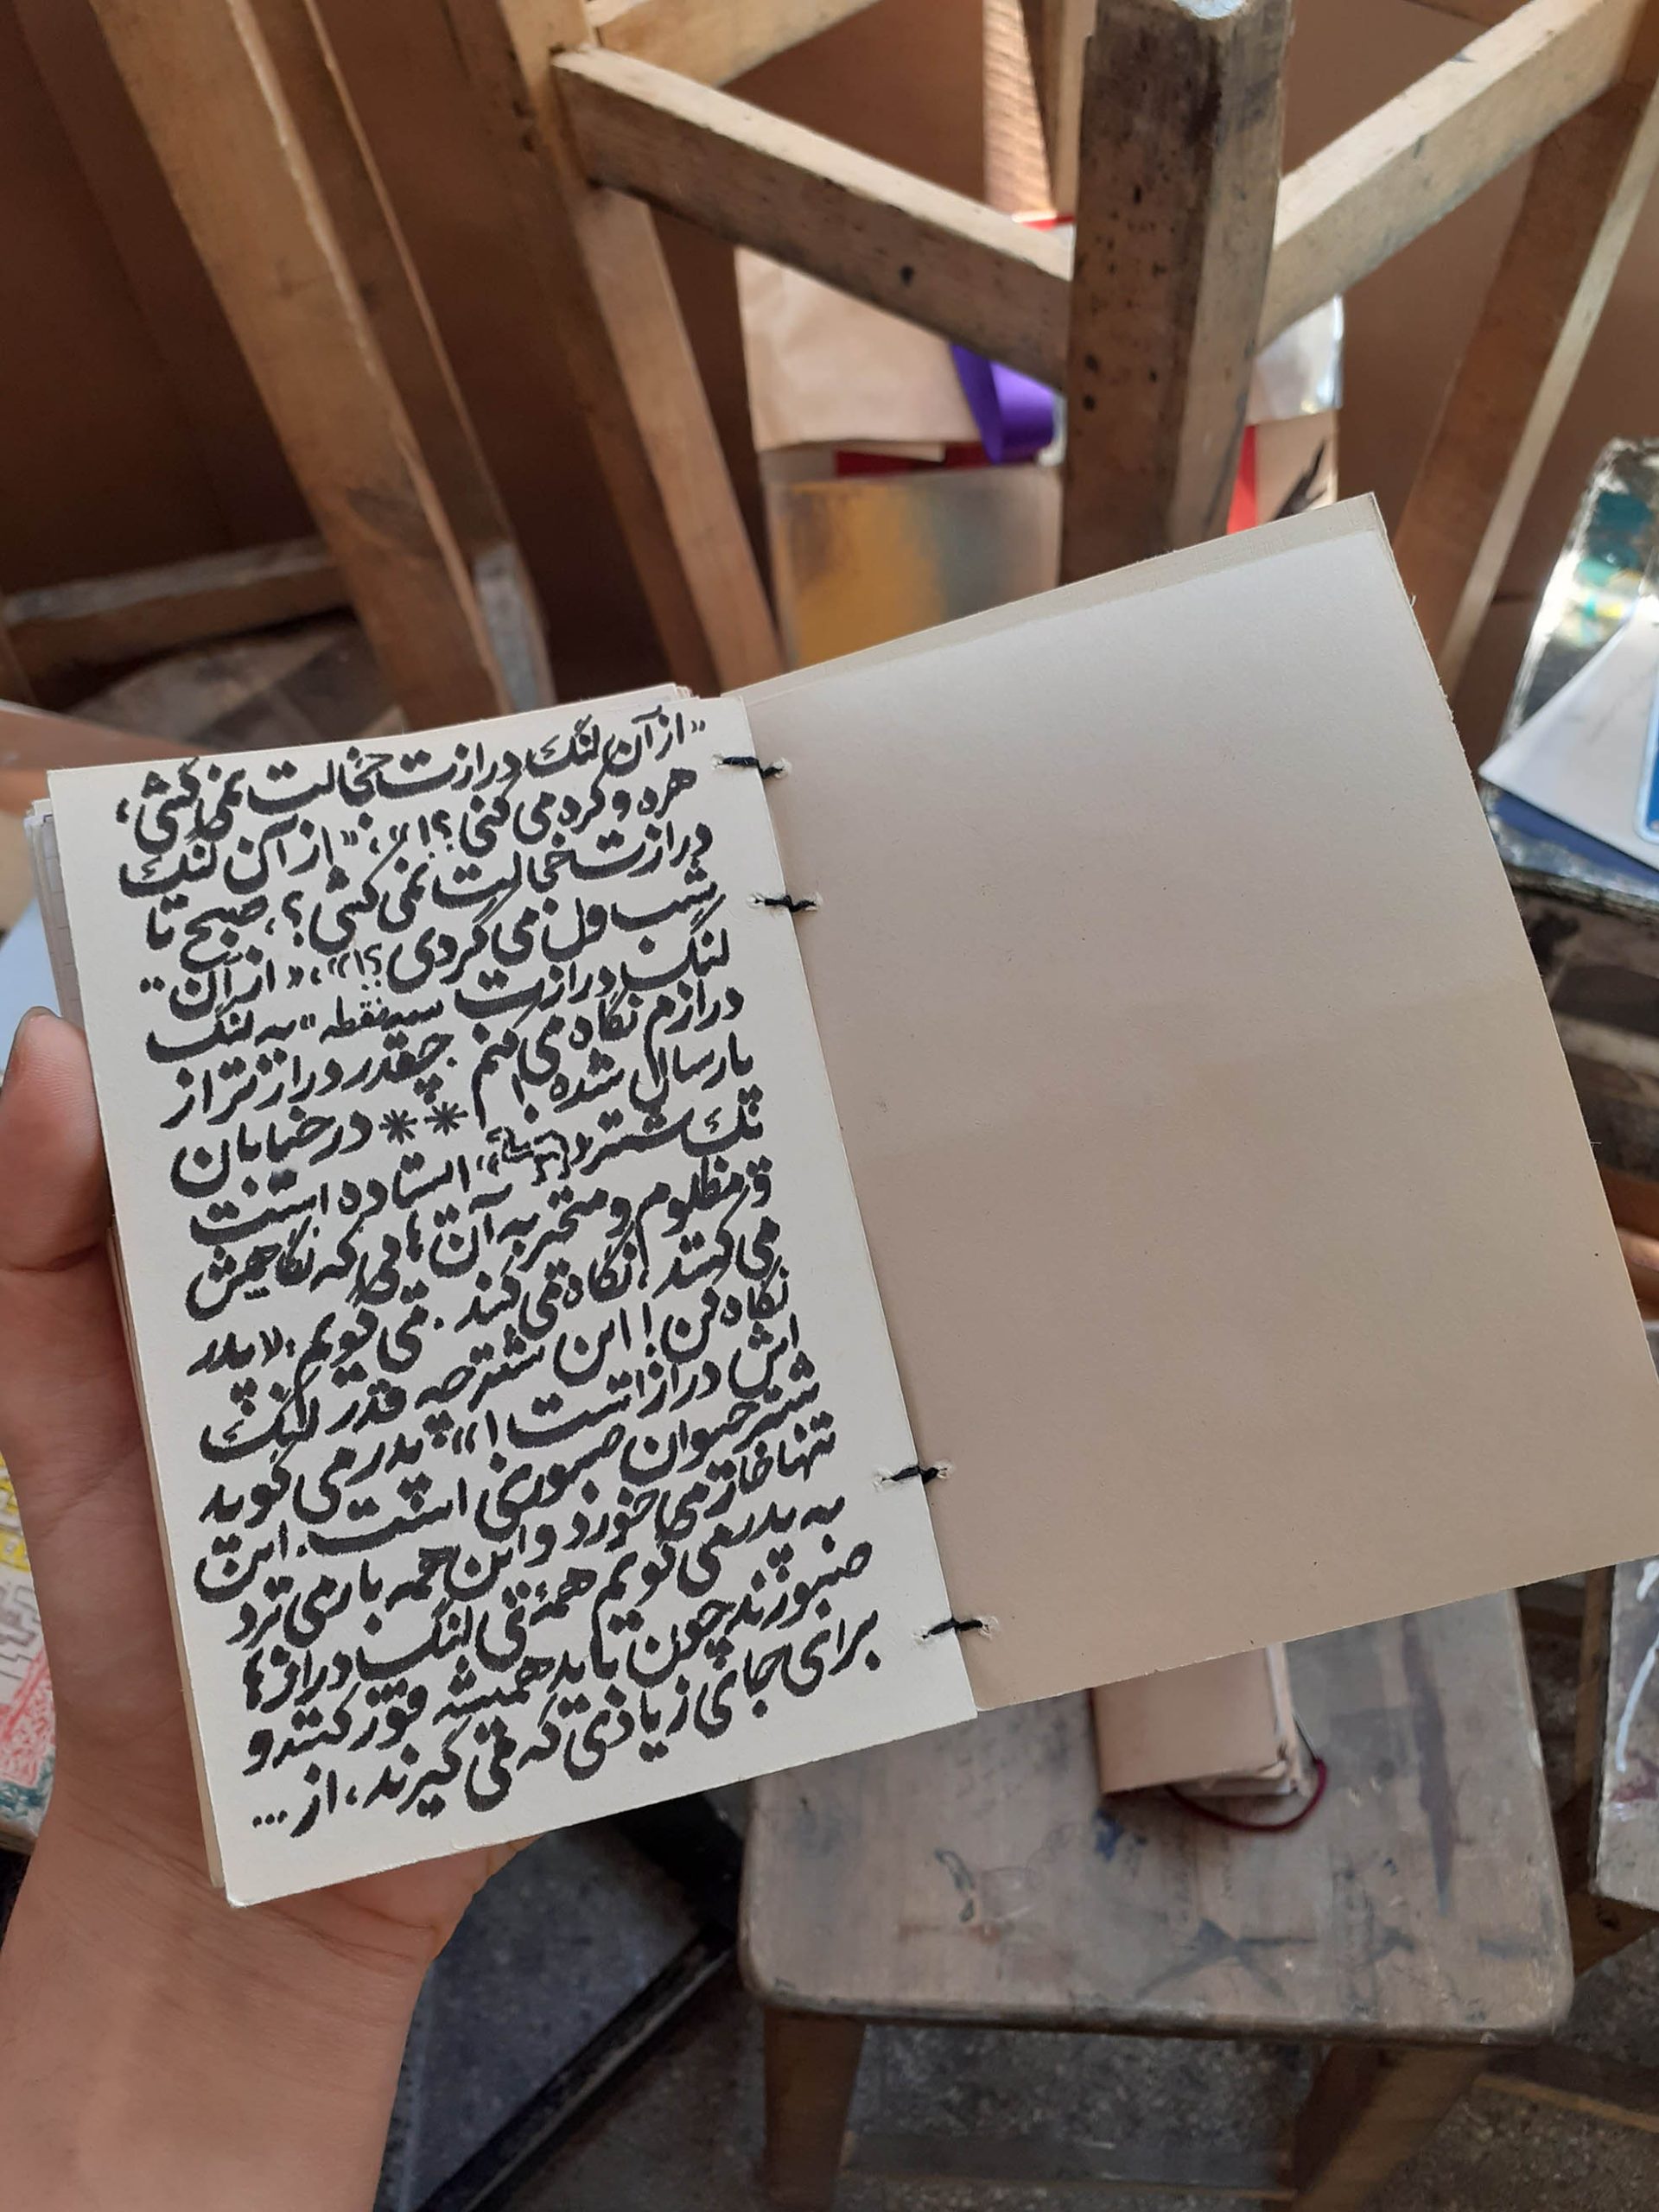 «از آن لنگ درازت خجالت نمی‌کشی،
هره و کره می‌کنی؟!»، «از آن لنگ
درازت خجالت نمی‌کشی؟، صبح تا
شب ول می‌گردی؟!»، «از آن
لنگ درازت سه نقطه» به لنگ
درازم نگاه می‌کنم. چقدر درازتر از
پارسال شده‌ام! ** در خیابان
تک شتر ایستاده است
و مظلوم و متحیر به آن‌هایی که نگاهش
می‌کنند، نگاه می‌کند. می‌گویم: «پدر
نگاه کن! این شتر چه قدر لنگ
اش دراز است!» پدر می‌گوید
شتر حیوان صبوری است. این
تنها خار می‌خورد و این همه بار می‌برد
به پدر می‌گویم همهٔ لنگ درازها
صبورند چون باید همیشه قوز کنند و
برای جای زیادی که می‌گیرند، از...